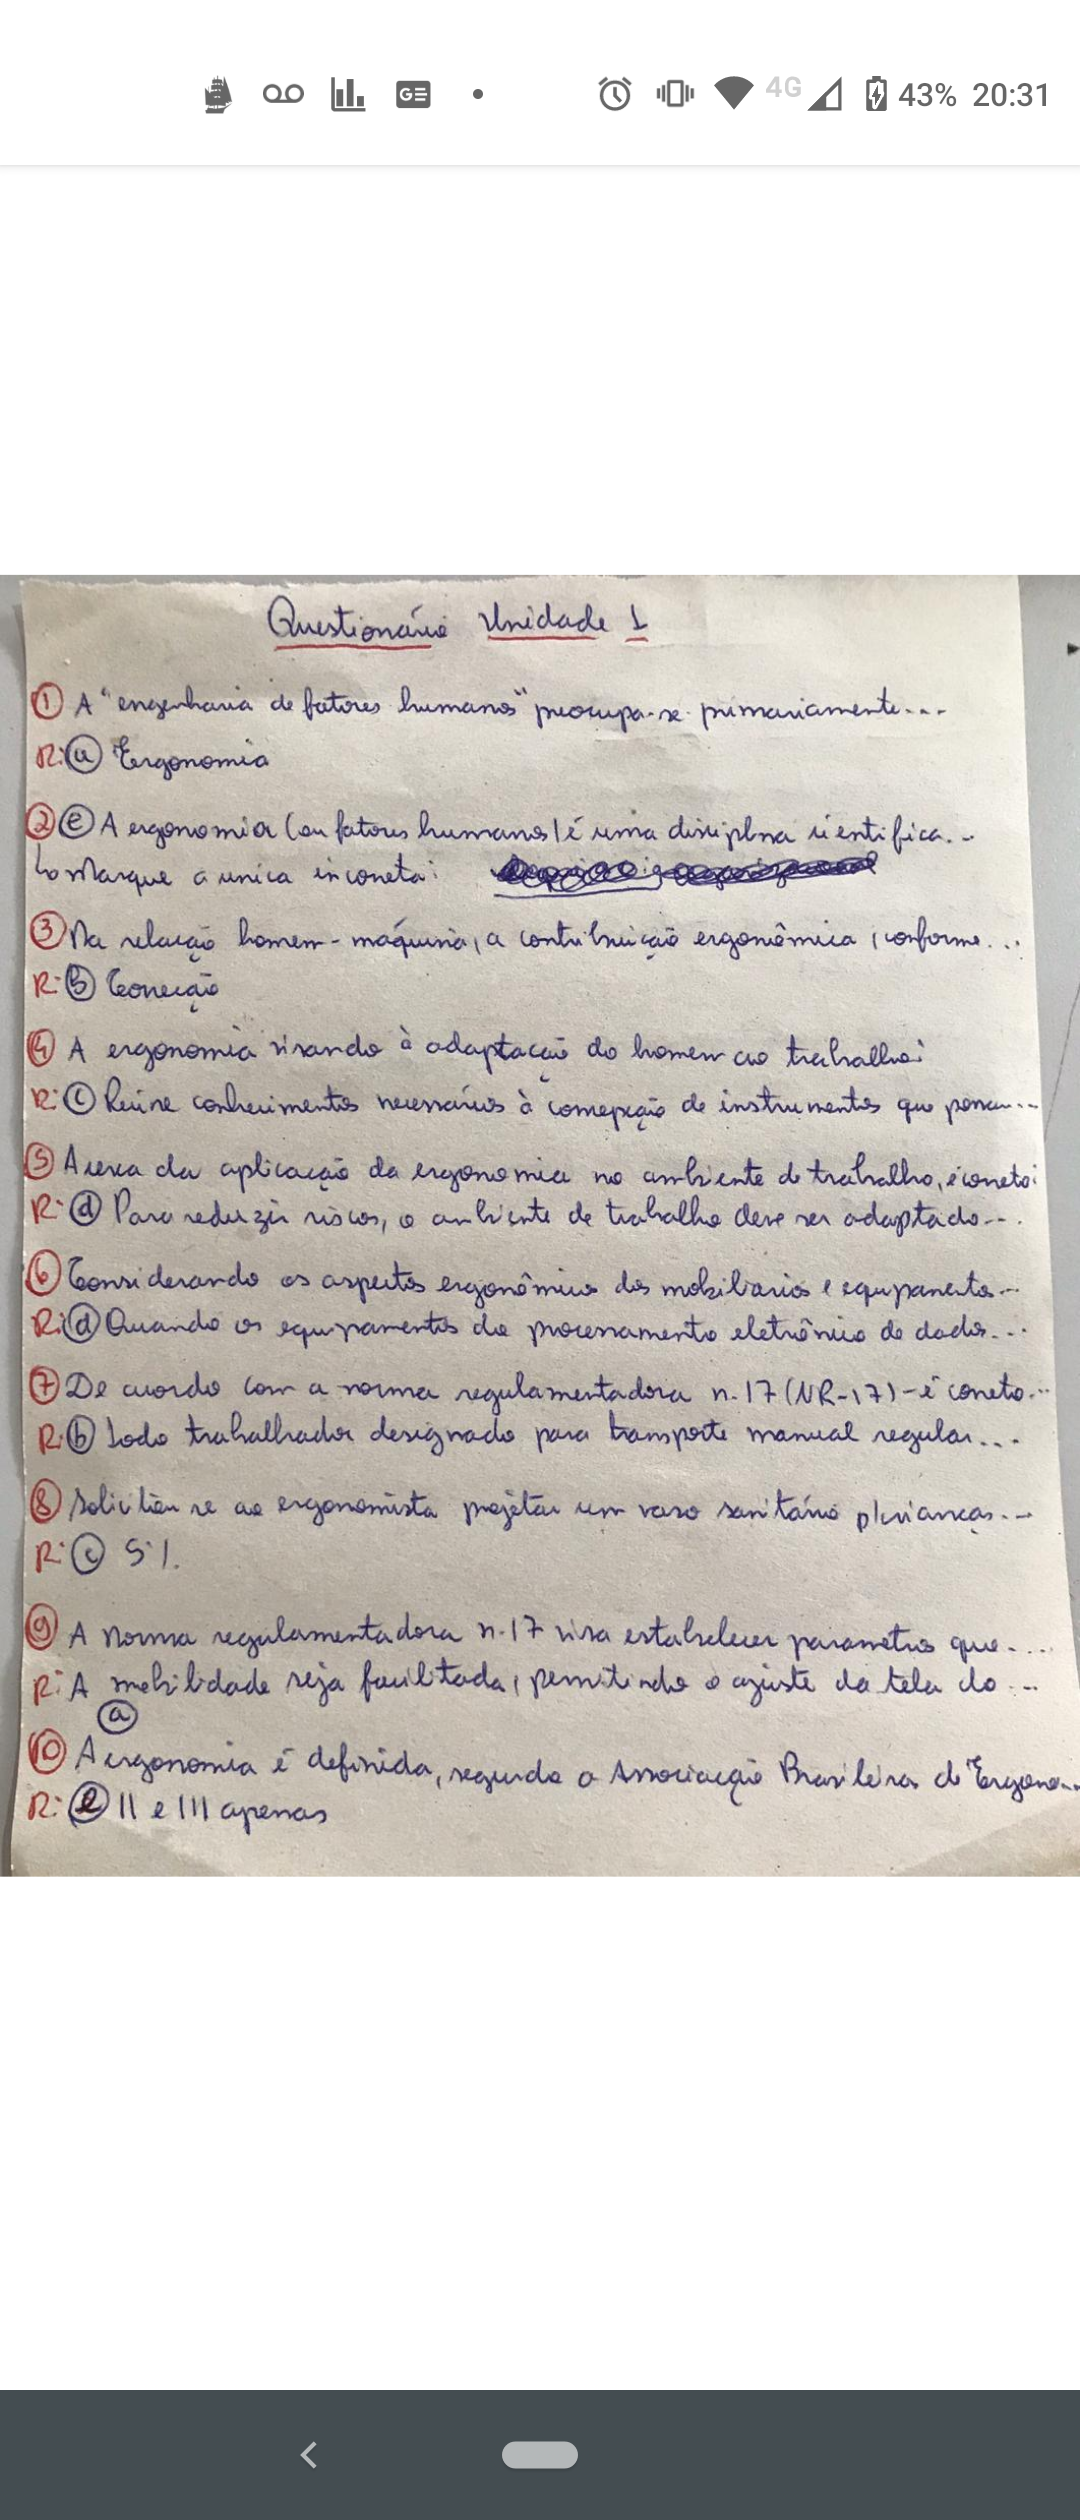 4G 43% 20:31
Questionário Unidade 1
① A "engenharia de fatores humanos" preocupa-se primariamente...
R: ⓐ Ergonomia
② ⓔ A ergonomia (ou fatores humanos) é uma disciplina científica...
↳ Marque a unica incorreta:
③ Na relação homem-máquina, a contribuição ergonômica, conforme...
R: ⓑ Correção
④ A ergonomia visando à adaptação do homem ao trabalho:
R: ⓒ Reúne conhecimentos necessários à concepção de instrumentos que possam...
⑤ Acerca da aplicação da ergonomia no ambiente de trabalho, é correto:
R: ⓓ Para reduzir riscos, o ambiente de trabalho deve ser adaptado...
⑥ Considerando os aspectos ergonômicos dos mobiliários e equipamentos...
R: ⓓ Quando os equipamentos de processamento eletrônico de dados...
⑦ De acordo com a norma regulamentadora n.17 (NR-17) - é correto...
R: ⓑ Todo trabalhador designado para transporte manual regular...
⑧ Solicitou se ao ergonomista projetar um vaso sanitário p/ crianças...
R: ⓒ 5%.
⑨ A norma regulamentadora n.17 visa estabelecer parametros que....
R: A mobilidade seja facilitada, permitindo o ajuste da tela do...
ⓐ
⑩ A ergonomia é definida, segundo a Associação Brasileira de Ergono...
R: ⓔ II e III apenas